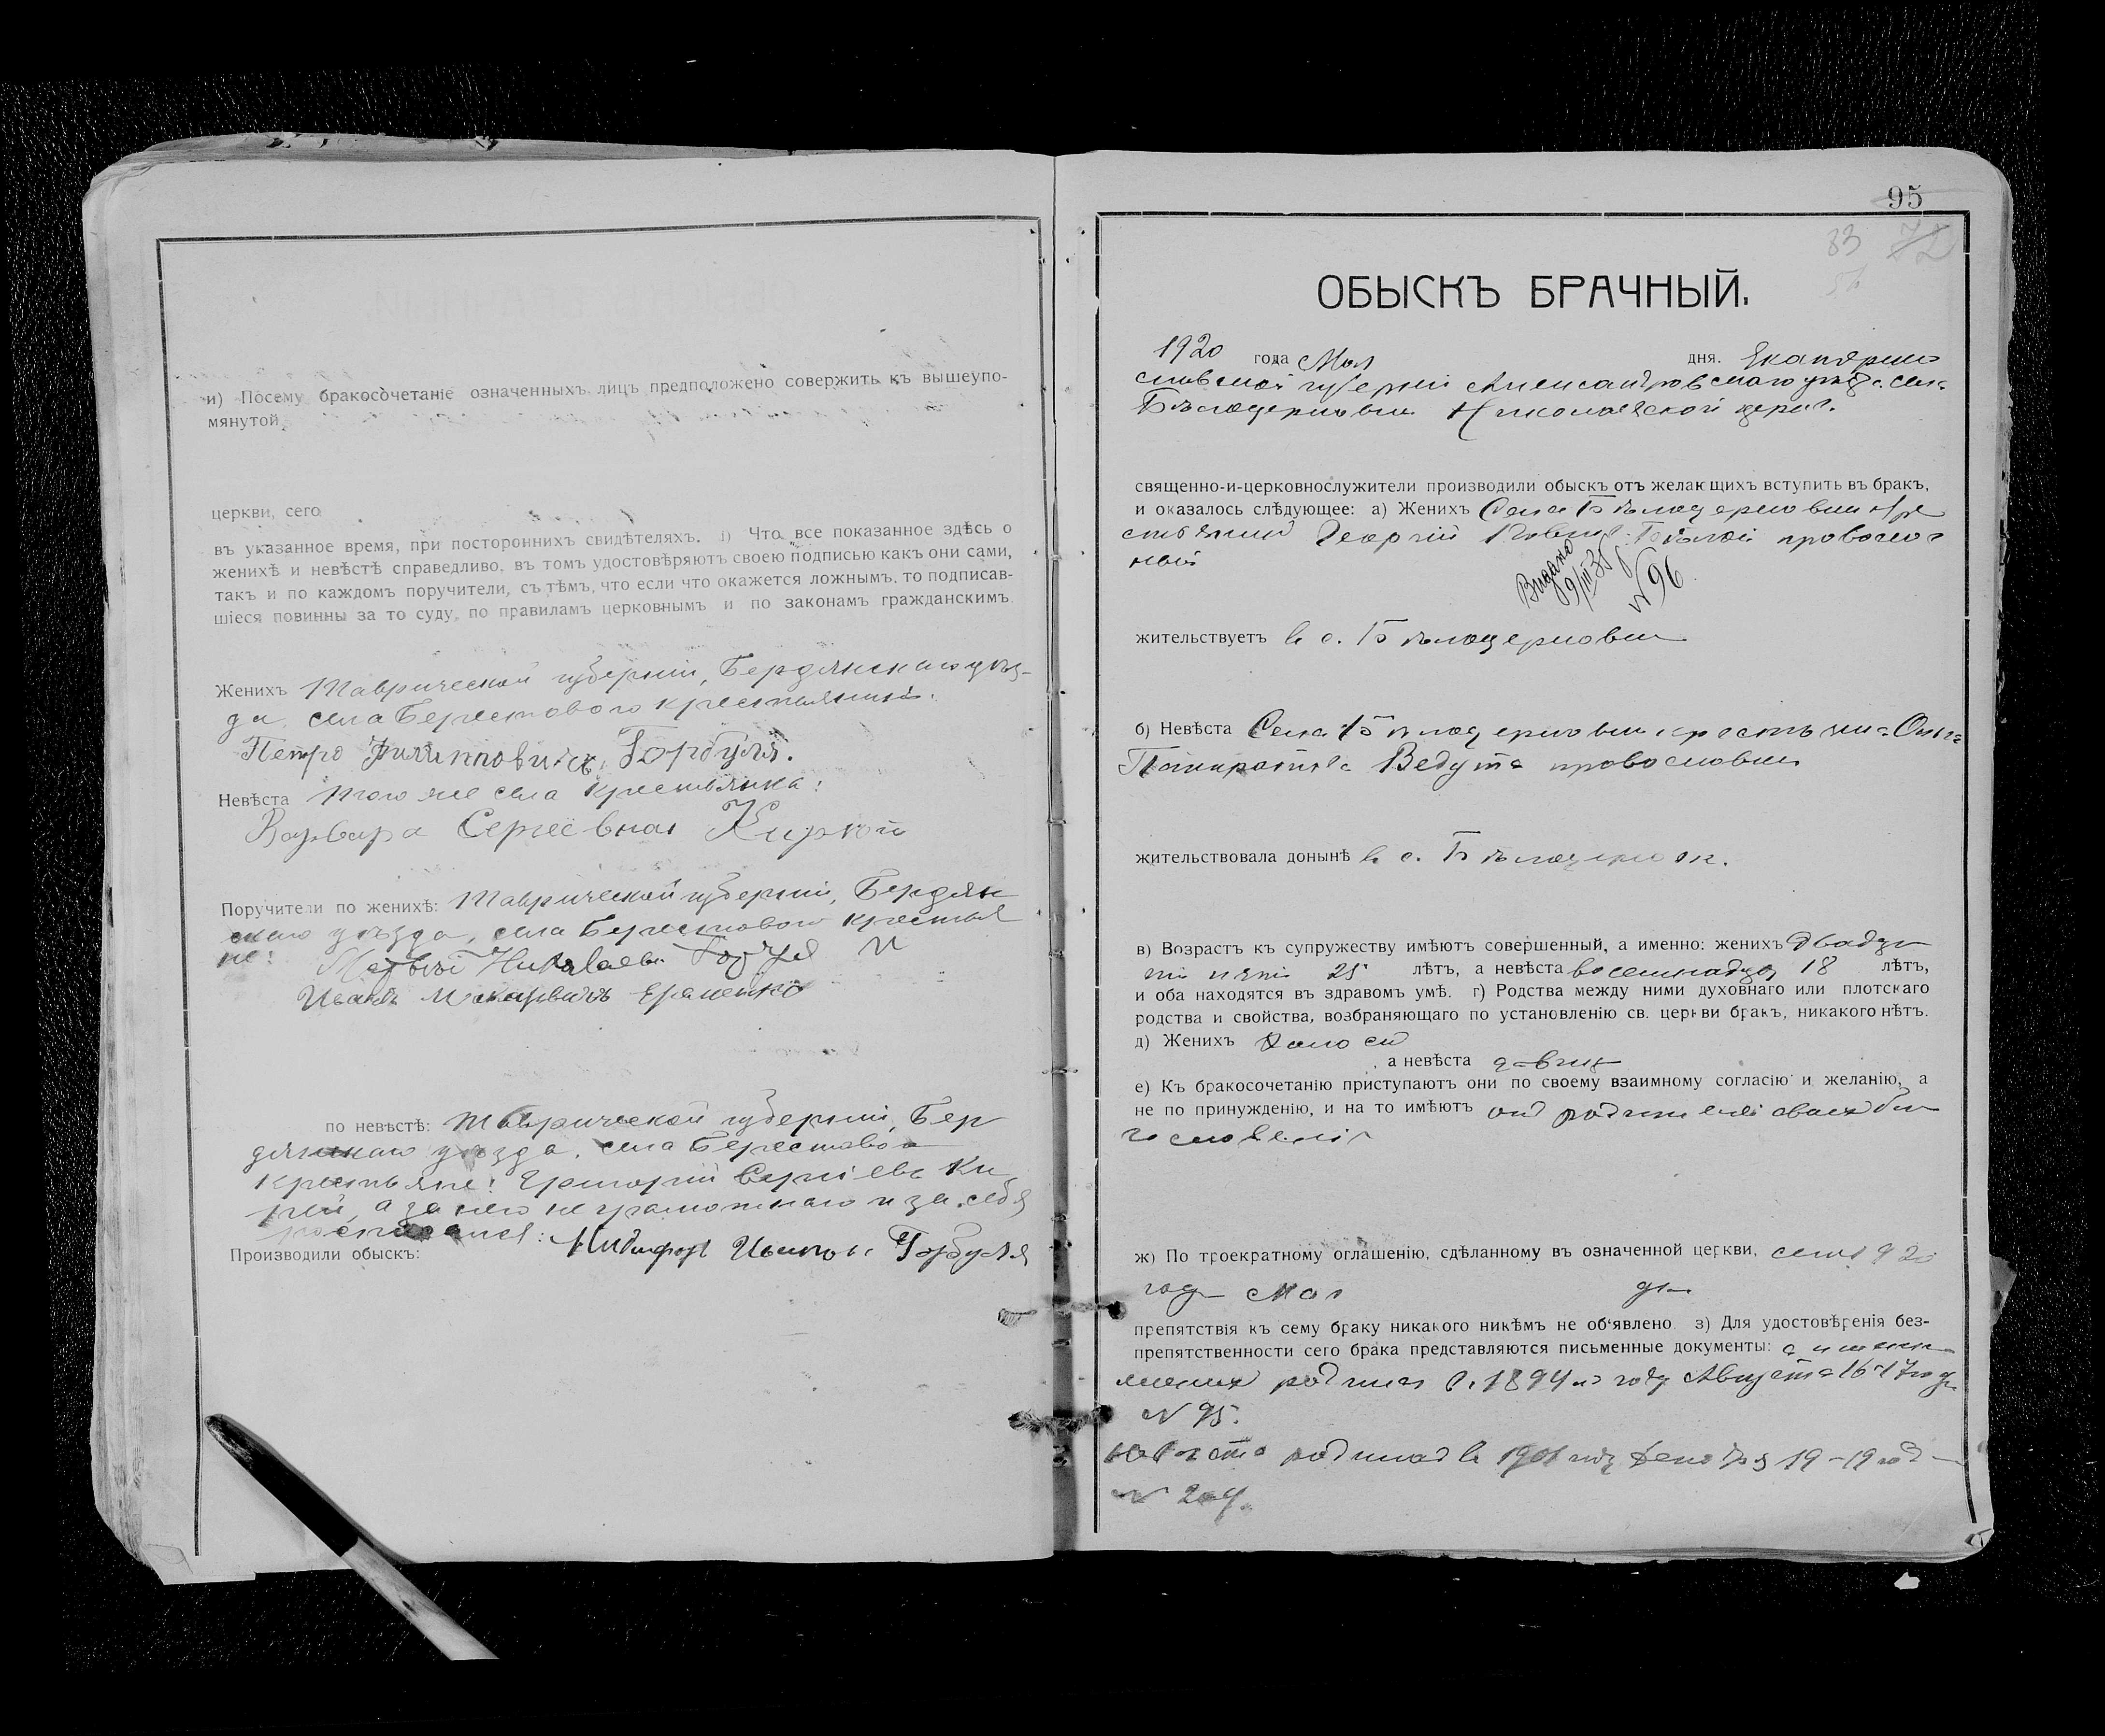 и) Посему бракосочетаніе означенныхъ лицъ предположено совержить къ вышеупо-
мянутой
церкви, сего
въ указанное время, при постороннихъ свидѣтеляхъ. і) Что все показанное здѣсь о
женихѣ и невѣстѣ справедливо, въ томъ удостовѣряютъ своею подписью какъ они сами,
такъ и по каждомъ поручители, съ тѣмъ, что если что окажется ложнымъ, то подписав-
шіеся повинны за то суду, по правиламъ церковнымъ и по законамъ гражданскимъ.
Женихъ Таврической губерніи, Бердянскаго уѣз-
да, села Берестового крестьянинъ:
Петро Филипповичъ Горбуля.
Невѣста того же села крестьянка:
Варвара Сергеевна
Поручители по женихѣ: Таврической губерніи, Бердян
скаго уѣзда, села Берестового крестья
не:
Иванъ
по невѣстѣ: Таврической губерніи, Бер
дянскаго уѣзда, села Берестового
крестьяне: Григорій Сергіевъ Ки
рей, а за него неграмотнаго и за себя
росписался:
Производили обыскъ: Никифоръ Горбуля
95
83 72
ОБЫСКЪ БРАЧНЫЙ.
1920 года Мая дня. Екатерино
славской губерніи Александровскаго уѣзда села
Бѣлоцерковки Николаевской церкви.
священно-и-церковнослужители производили обыскъ отъ желающихъ вступить въ бракъ,
и оказалось слѣдующее: а) Женихъ Села Бѣлоцерковки кре
стьянинъ Георгій православ
ный
Видано
№ 96
жительствуетъ въ с. Бѣлоцерковки
б) Невѣста Села Бѣлоцерковки крестьянка Ольга
Ведута православн
жительствовала донынѣ в с. Бѣлоцерковк.
в) Возрастъ къ супружеству имѣютъ совершенный, а именно: женихъ двадца
ти пяти 25 лѣтъ, а невѣста восемнадца 18 лѣтъ,
и оба находятся въ здравомъ умѣ. г) Родства между ними духовнаго или плотскаго
родства и свойства, возбраняющаго по установленію св. церкви бракъ, никакого нѣтъ.
д) Женихъ холост
, а невѣста дѣвица
е) Къ бракосочетанію приступаютъ они по своему взаимному согласію и желанію, а
не по принужденію, и на то имѣютъ отъ родителей своихъ бла
гословенія
ж) По троекратному оглашенію, сдѣланному въ означенной церкви, сего 1920
года Мая дня
препятствія къ сему браку никакого никѣмъ не об'явлено. з) Для удостовѣренія без-
препятственности сего брака представляются письменные документы:
женихъ родился в 1894 году Августа 16-17
№ 95.
невѣста родилась в 1901 году Декабря 19-19
№ 204.